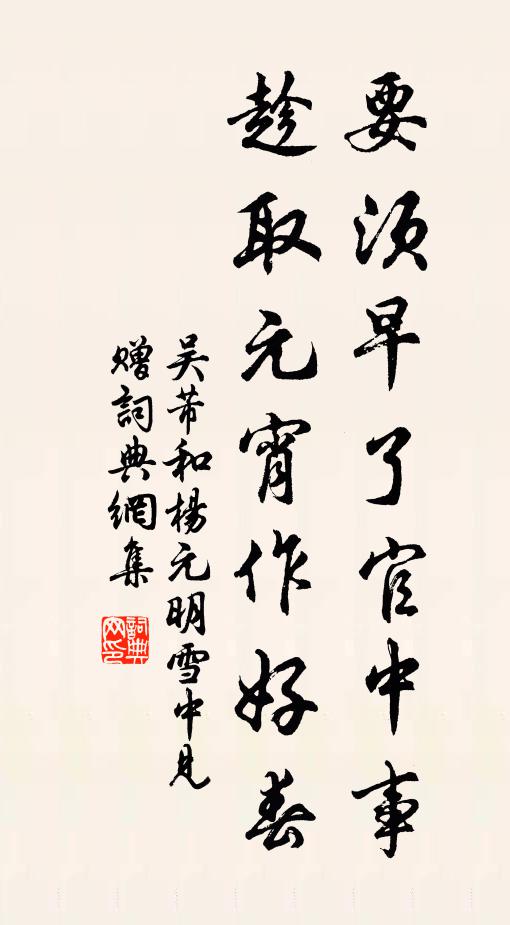 要須早了官中事
趁取元宵作好春
吴芾和楊元明雪中見
贈詞典網集
詞典网印